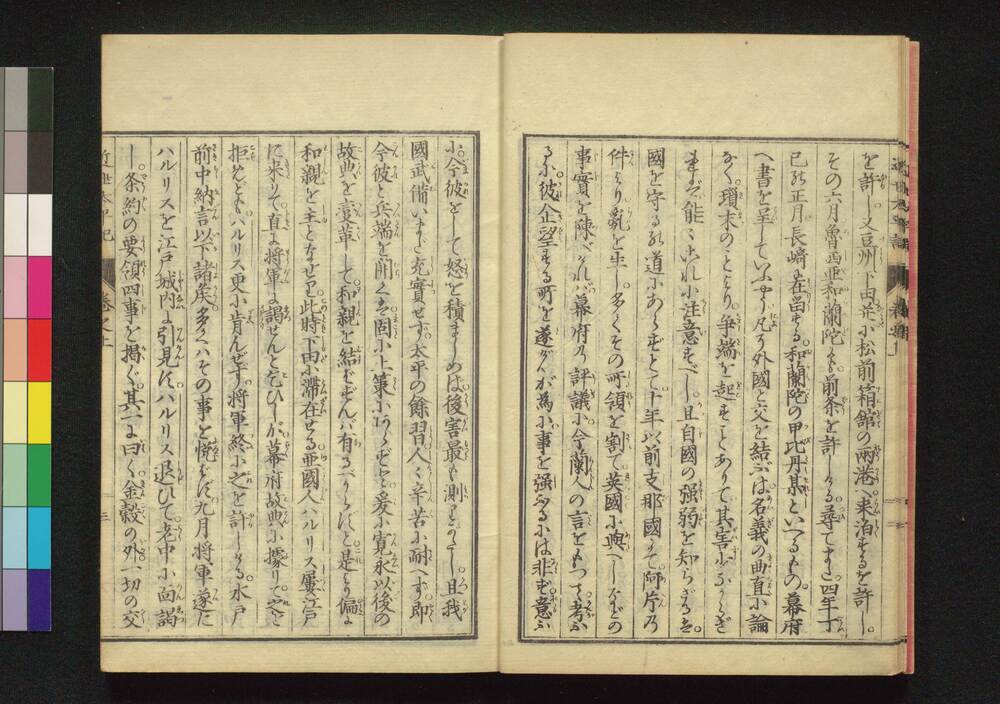 を許し又豆州下田并小松前箱舘の兩港へ来泊するを許し。
その六月魯西亜和蘭陀にも前条を許しける。尋てまた四年丁
巳の正月長崎に在留する。和蘭陀の甲比丹某といへるもの。幕府
へ書を呈していふやう凡そ外國と交を結ぶは名義の曲直に論
なく。瑣末のことより。争端を起すことありて其害少なからざ
れバ能々これに注意すべし。且自國の强弱を知らざるは。
國を守るの道にあらずとて。十年以前支那國にて阿片の
件より乱を生じ。多くその所領を割て。英國に與へしなどの
事實を陳べければ幕府の評議に。今蘭人の言をもつて考ふ
るに彼企望する所を遂んが為に事を强るには非ず。意ふ
に。今彼をして怒を積ましめば後害最も測りがたし。且我
國武備いまだ充實せず。太平の餘習人々辛苦に耐へず。即
今彼と兵端を開くは固に上策にあらずと。爰に寛永以後の
故典を変革して。和親を結ばずんバ有るべからずと。是より偏に
和親を主となせり。此時下田に滞在せる亜國人ハルリス屡江戸
に来りて。直に将軍に謁せんとこひしが幕府故典に據りて。之を
拒めどもハルリス更に肯んぜず。将軍終に之を許しける。水戸
前中納言以下諸矦。多くハその事を悦ばず。九月将軍遂に
ハルリスを江戸城内に引見す。ハルリス退ひて。老中に面謁
し。条約の要領四事を掲ぐ。其一に曰く。金穀の外一切の交
近世太平記
巻之上
三